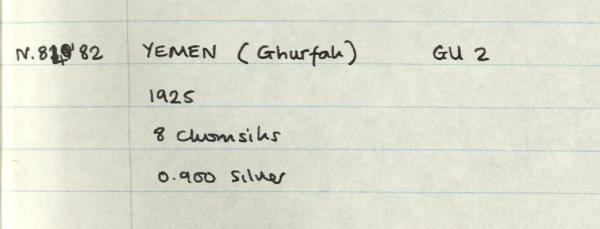 N. 82 YEMEN (Ghurfah) GU 2
1925
8 Chomsihs
0.900 Silver